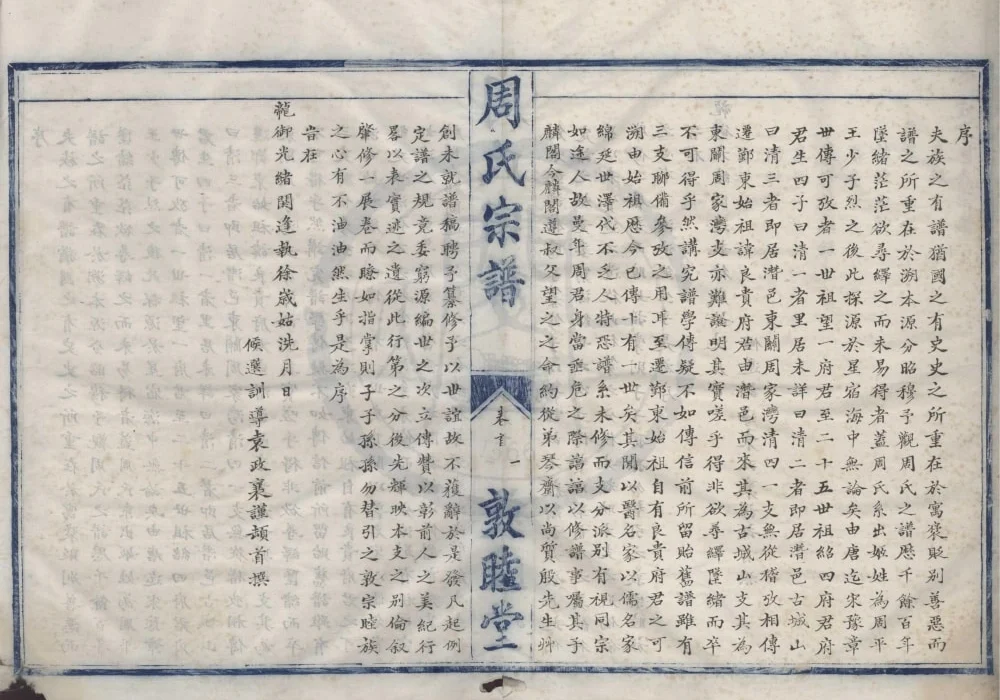 序
夫族之有譜猶國之有史史之所重在於寓褒貶別善惡而
譜之所重在於溯本源分昭穆予觀周氏之譜歷千餘百年
墜緒茫茫欲尋繹之而未易得者蓋周氏系出姬姓為周平
王少子烈之後此探源於星宿海中無論矣由唐迄宋豫章
世傳可攷者一世祖望一府君至二十五世祖紹四府君府
君生四子曰清一者里居未詳曰清二者即居潛邑古城山
曰清三者即居潛邑東關周家灣清四一支無從稽攷相傳
遷鄞東始祖諱良貴府君由潛邑而來其為古城山支其為
東關周家灣支亦難證明其實嗟乎得非欲尋繹墜緒而卒
不可得乎然講究譜學傳疑不如傳信前所留貽舊譜雖有
三支聯備參攷之用耳至遷鄞東始祖自有良貴府君之可
溯由始祖歷今已傳十有一世矣其間以醫名家以儒名家
綿延世澤代不乏人特恐譜系未修而支分派別有視同宗
如途人故曼年周君身當垂危之際諳諳以修譜事囑其子
麟閣今麟閣遵叔父望之之命約從弟琴齋以尚質殷先生
周氏宗譜
卷首
一
敦睦堂
創未就譜稿聘予纂修予以世誼故不獲辭於是發凡起例
定譜之規竟委窮源編世之次立傳贊以彰前人之美紀行
畧以表實迹之遺從此行第之分後先輝映本支之別倫叙
肇修一展卷而瞭如指掌則子子孫孫勿替引之敦宗睦族
之心有不油油然生乎是為序
旹在
龍御光緒閼逢執徐歲姑洗月日
候選訓導袁政襄謹頓首撰